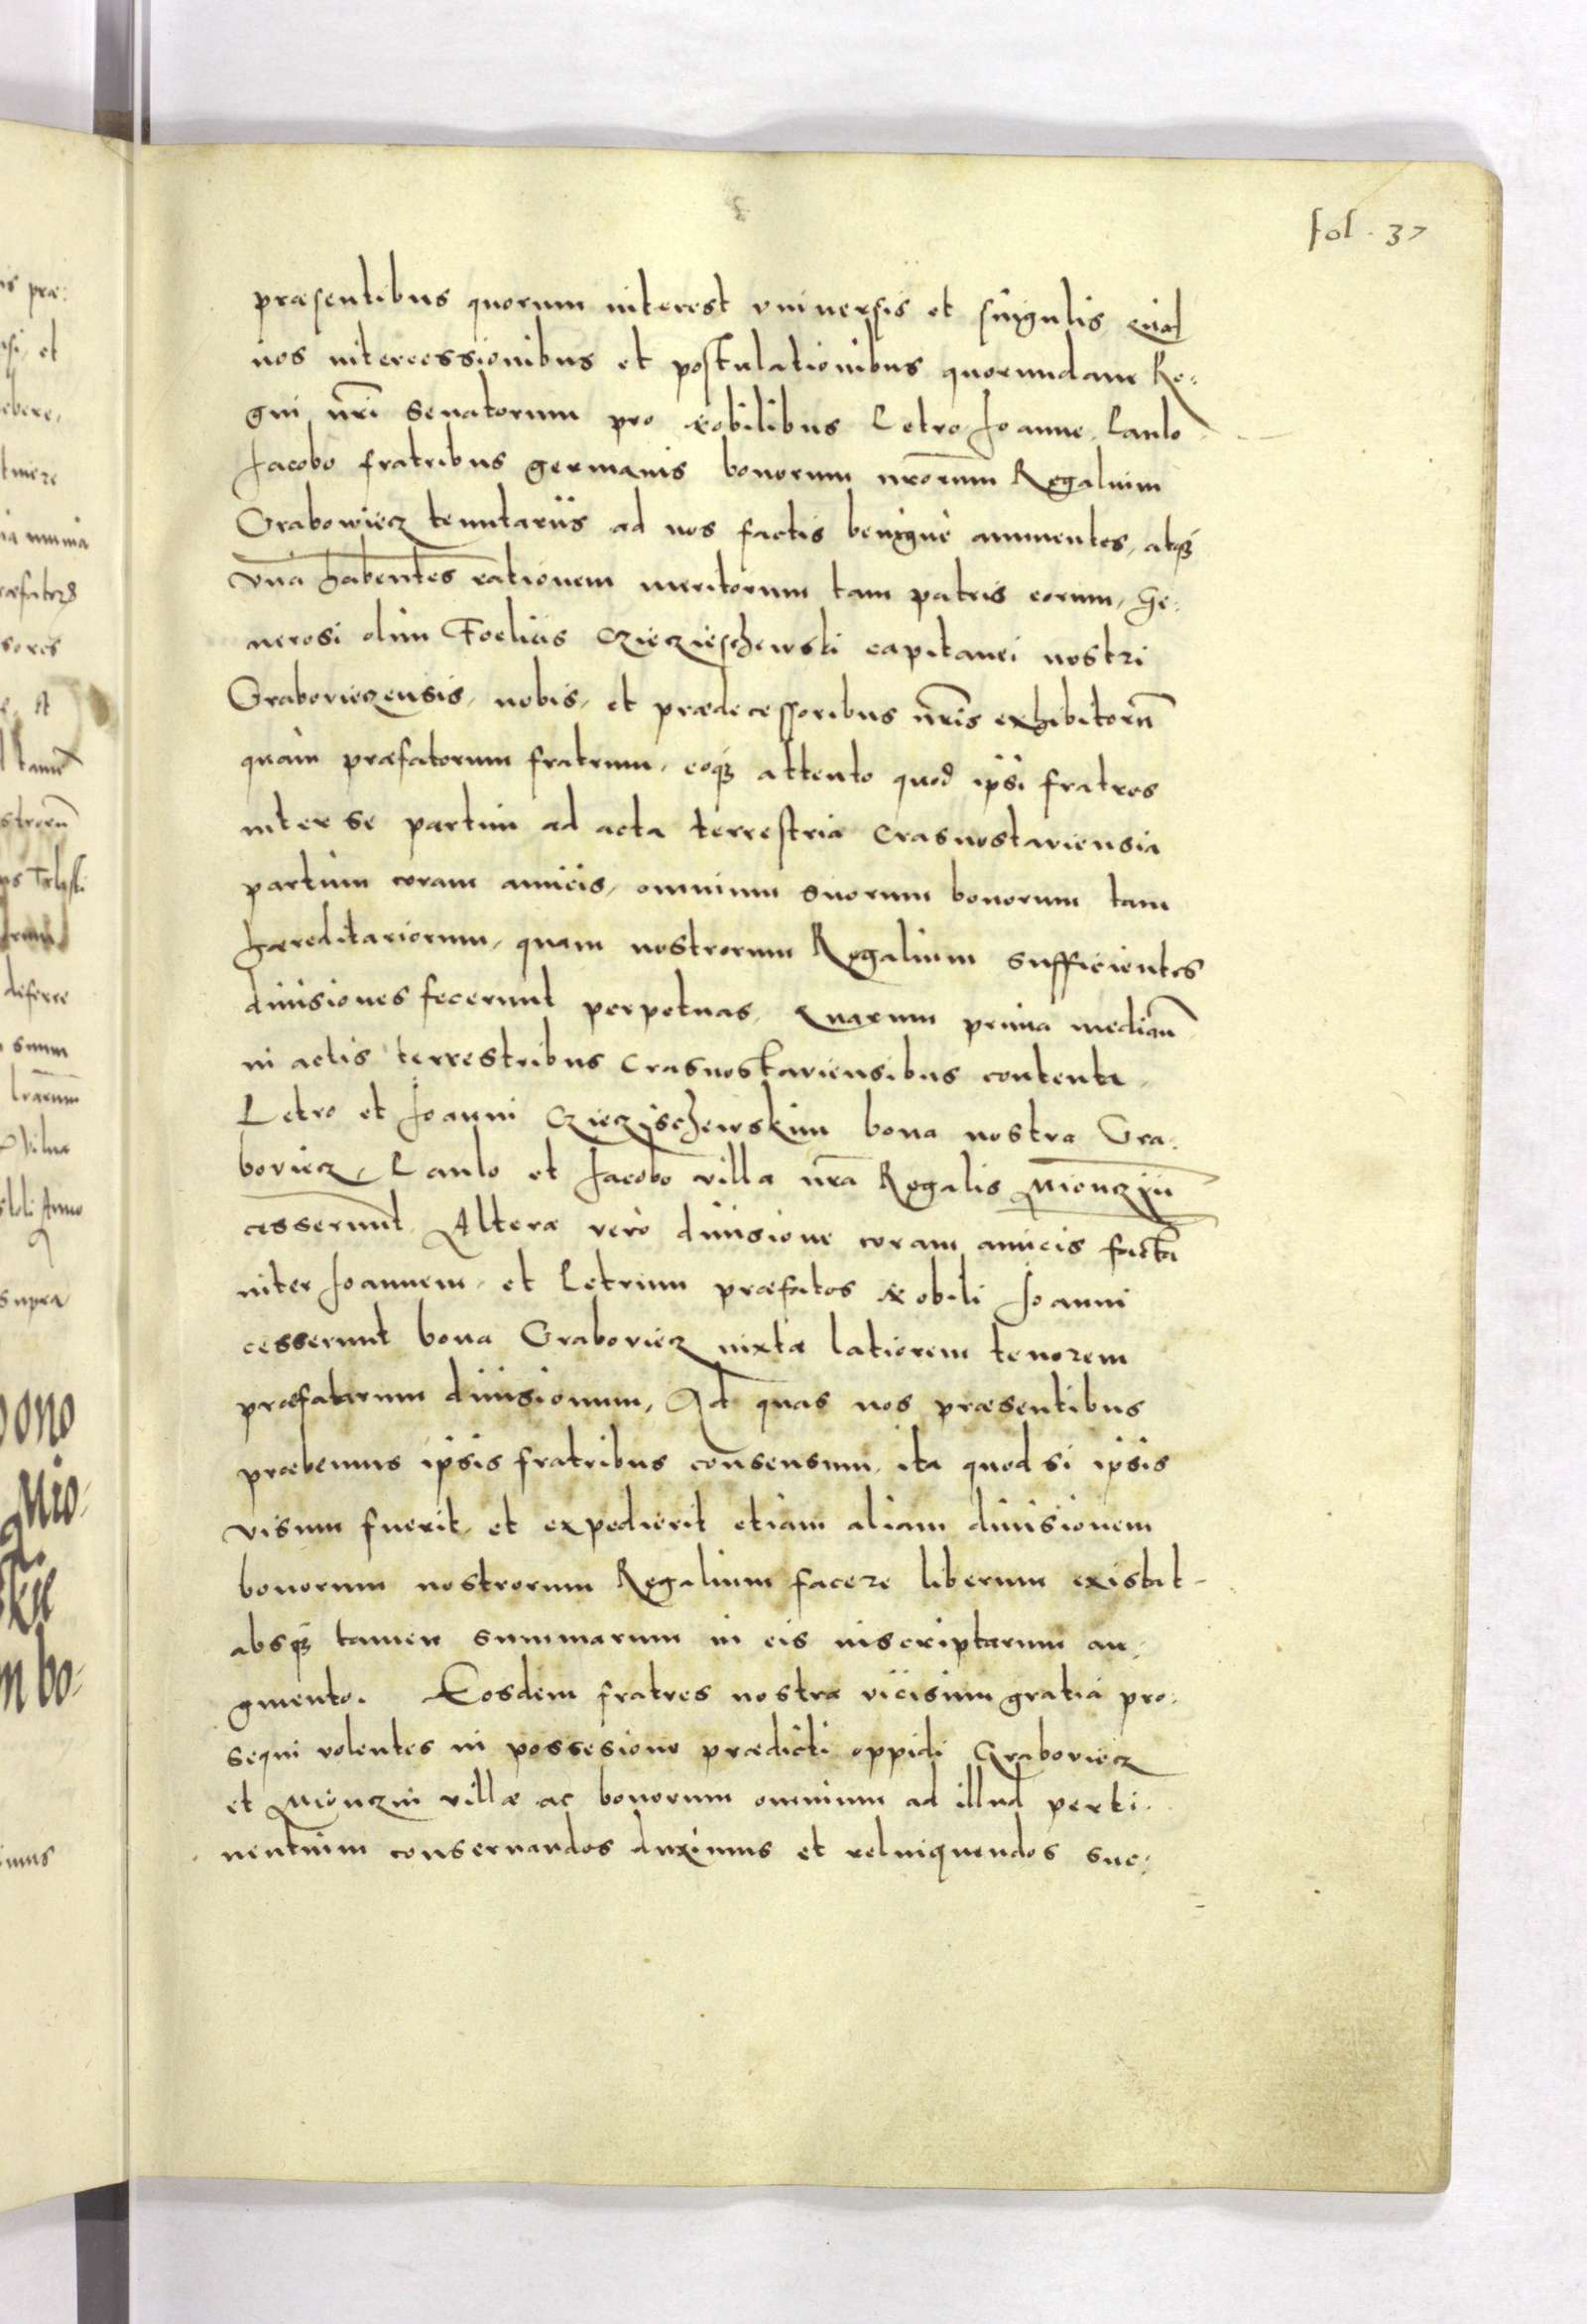 fol. 37
præsentibus quorum interest vniuersis et singulis
nos intercessionibus et postulationibus quorundam Re:
gni nr̄i Senatorum pro Nobilibus Petro, Joanne, Paulo
Jacobo fratribus germanis bonorum nr̄orum Regalium
Grabowiecz tenutariis ad nos factis benignè annuentes, atqȝ
vnà habentes rationem meritorum tam patris eorum, Ge:
nerosi olim Foelicis Czieczieschewski capitanei nostri
Grabovieczensis, nobis, et prædecessoribus nr̄is exhibitorū
quàm præfatorum fratrum, eoqȝ attento quod ipsi fratres
inter se partim ad acta terrestria Crasnostaviensia
partim coram amicis, omnium suorum bonorum tam
hæreditariorum, quam nostrorum Regalium sufficientes
diuisiones fecerunt perpetuas, Quarum prima mediaun̄
in actis terrestribus Crasnostaviensibus contenta,
Petro et Joanni Czieczischewskim bona nostra Gra:
boviecz, Paulo et Jacobo villa nr̄a Regalis Mionczin
cesserunt, Altera verò diuisione coram amicis facta
inter Joannem, et Petrum præfatos Nobili Joanni
cesserunt bona Graboviecz iuxta latiorem tenorem
præfatarum diuisionum, Ad quas nos præsentibus
præbemus ipsis fratribus consensum, ita quod si ipsis
visum fuerit, et expedierit etiam aliam diuisionem
bonorum nostrorum Regalium facere liberum existat
absqȝ tamen summarum in eis inscriptarum au:
gmento. Eosdem fratres nostra vicisim gratia pro:
sequi volentes in possesione prædicti oppidi Graboviecz
et Mionczin villæ ac bonorum omnium ad illud perti:
nentium conseruandos duximus et relinquendos suc: